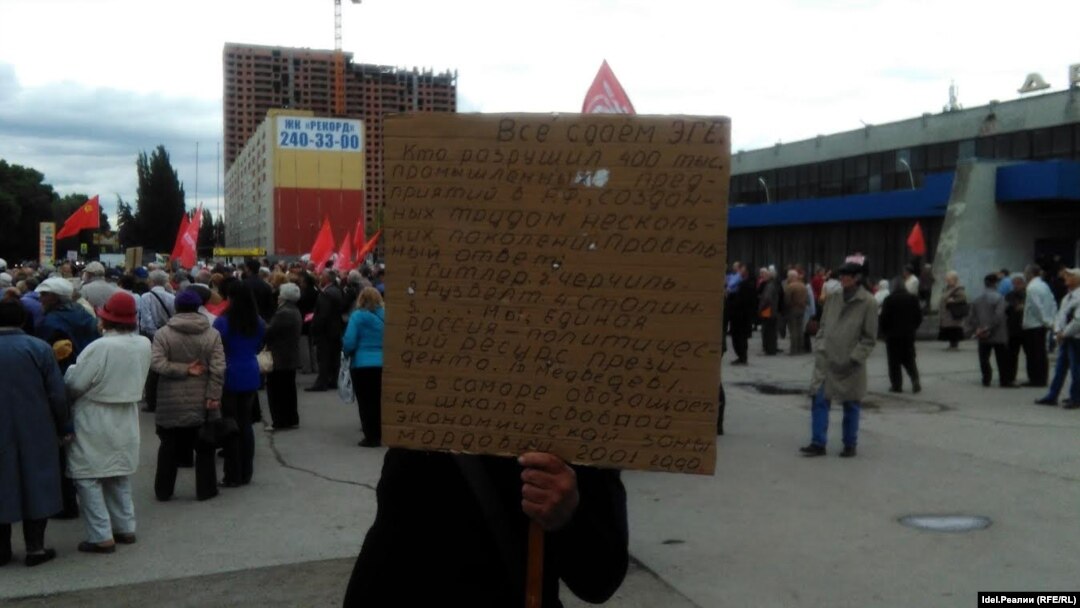 ЖК «РЕКОРД»
240-33-00
Все сдаем ЭГЕ
Кто разрушил 400 тыс.
промышленных пред-
приятий в РФ, создан-
ных трудом несколь-
ких поколений. Правель
ный ответ:
1. Гитлер. 2. Черчиль
3. Рузвельт. 4. Сталин.
5.... Мы, единая
россия - политичес-
кий ресурс прези-
дента.
в самаре обогащает-
ся школа - свобод
экономической зоны
мордовии 2001 года
Idel.Реалии (RFE/RL)